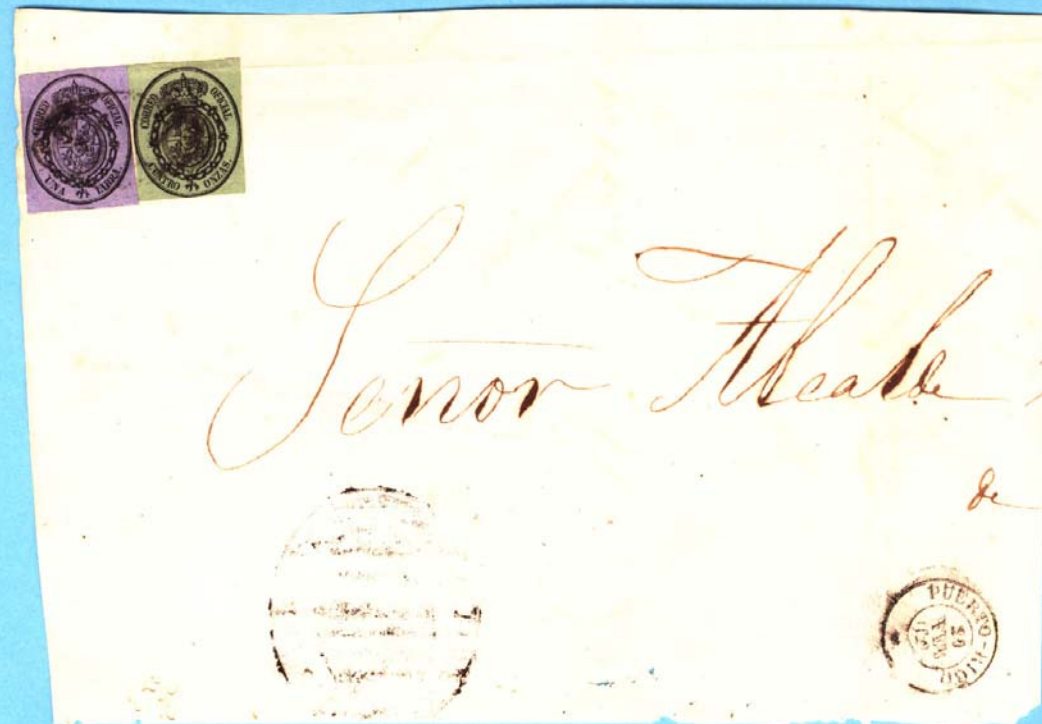 CORREO OFICIAL
UNA LIBRA.
CORREO OFICIAL
CUATRO ONZAS.
Señor Alcalde
de
PUERTO-RICO
20